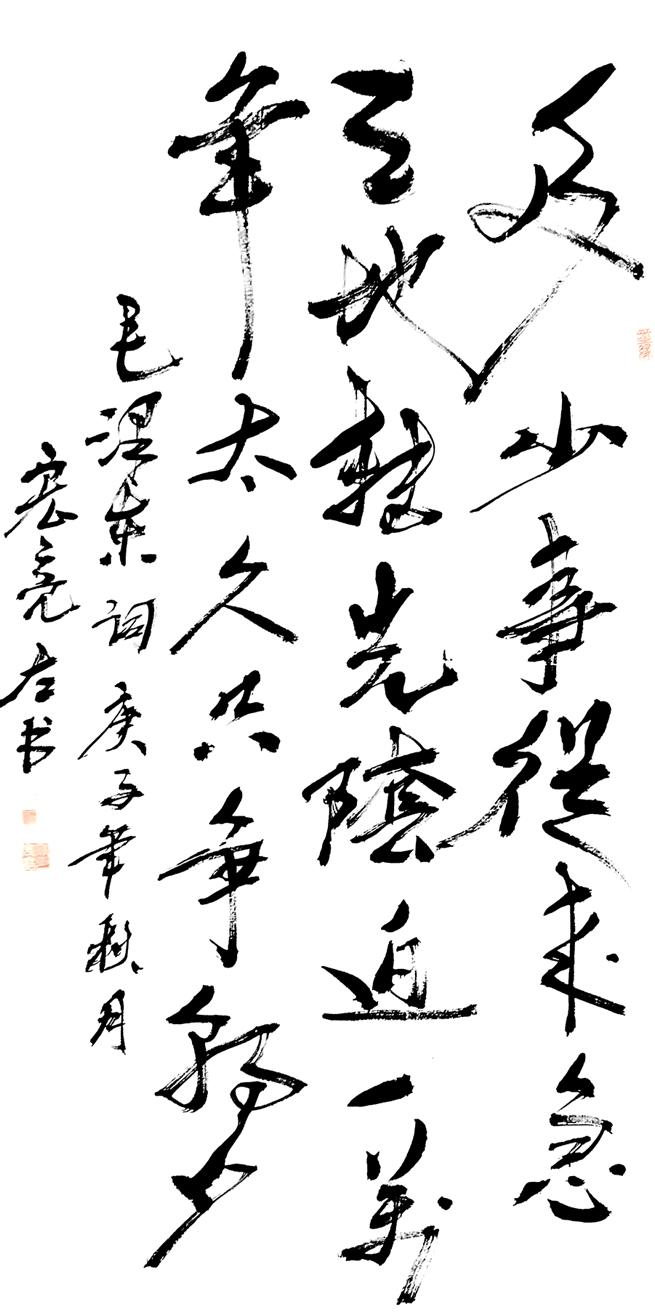 多少事從来急
天地轉光陰迫一萬
年太久只争朝夕
毛澤東詞庚子年秋月
宏亮左书